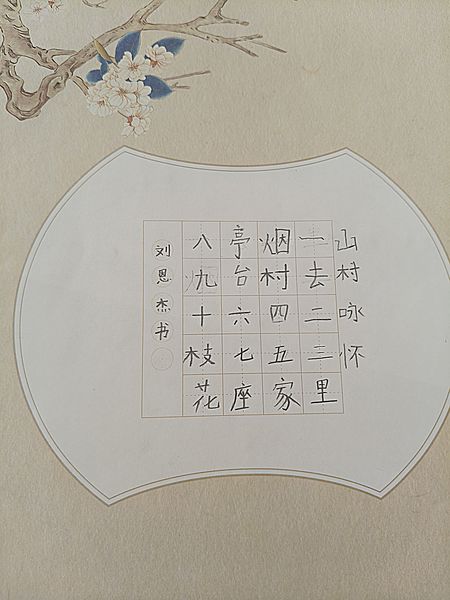 山村咏怀
一去二三里
烟村四五家
亭台六七座
八九十枝花
刘恩杰书